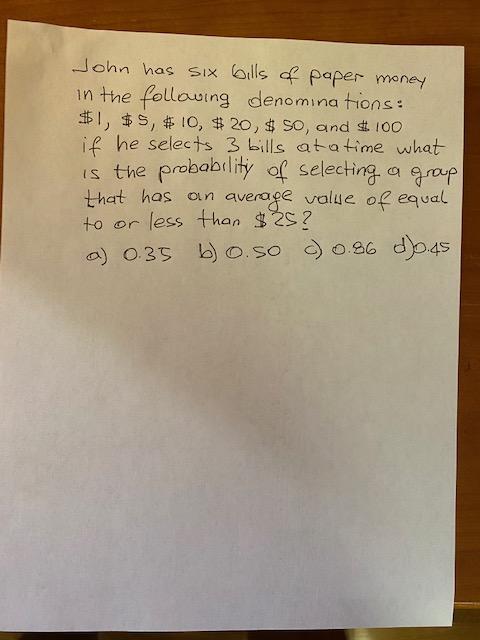 John has six bills of paper money
in the following denominations:
$1, $5, $10, $20, $50, and $100
if he selects 3 bills at a time what
is the probability of selecting a group
that has an average value of equal
to or less than $25?
a) 0.35 b) 0.50 c) 0.86 d) 0.45